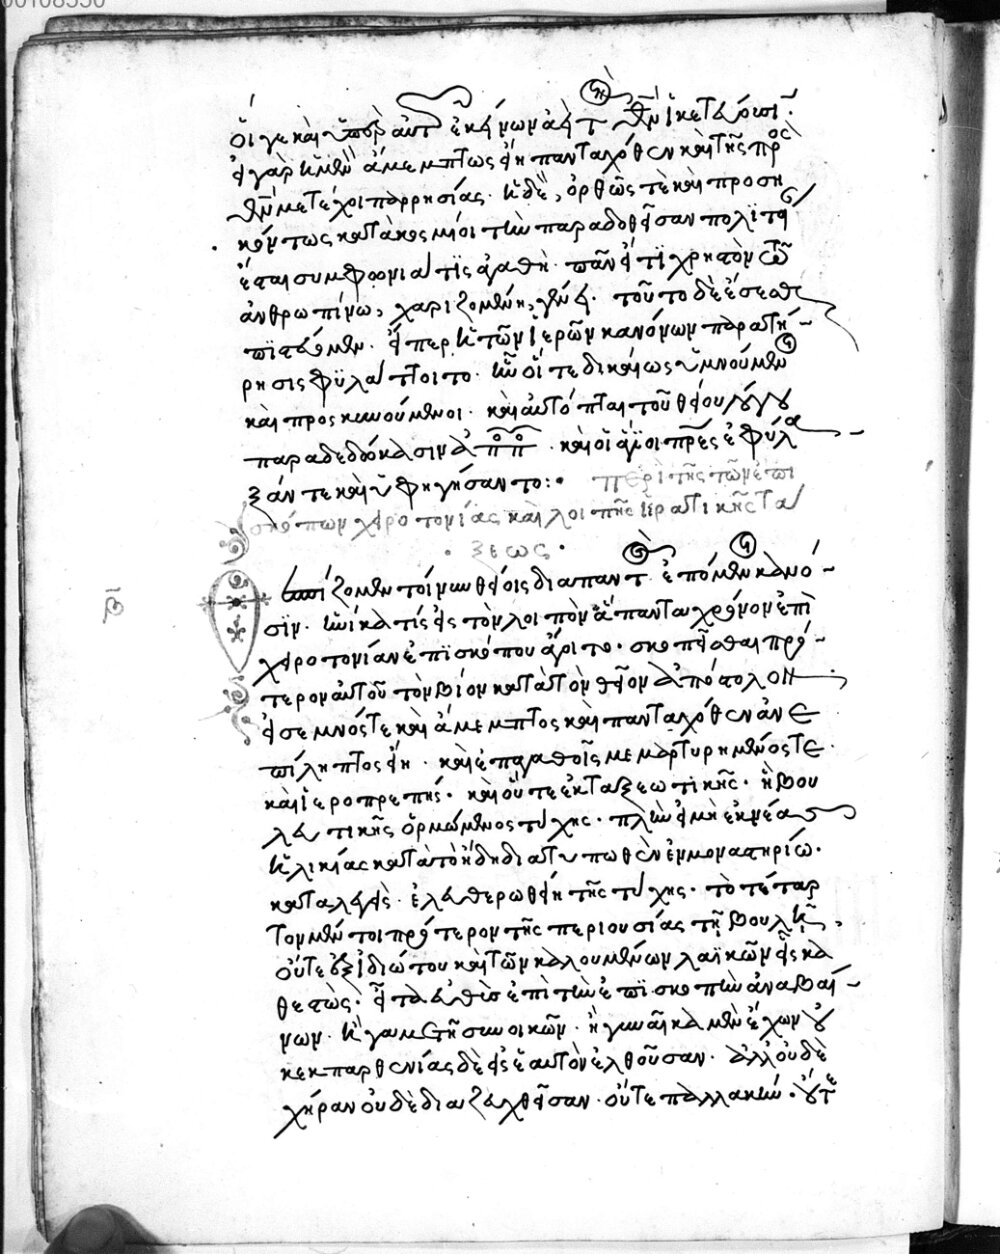 οἵ γε καὶ ὑπὲρ αὐτ ἐκείνων ἀεὶ τ θῦ ἱκετεύουσι.
εἰ γὰρ ἡ μὲν ἀμέμπτως εἴη πανταχόθεν καὶ τῆς πρὸς
θν μετέχοι παρρησίας. ἡ δὲ, ὀρθῶς τὲ καὶ προση
κόντως κατακοσμοίοι τὴν παραδοθεῖσαν πολιτεί
ἔσται συμφωνία τὶς ἀγαθὴ. πᾶν εἴ τι χρηστὸν τῶ
ἀνθρωπίνω, χαριζομένη, γένει. τοῦτο δὲ ἔσεσθαι
πιστεύομεν. εἴπερ ἡ τῶν ἱερῶν κανόνων παρατή-
ρησις φυλάττοιτο. ἣν οἵ τε δικαίως ὑμνούμενοι
καὶ προσκυνούμενοι. καὶ αὐτόπται τοῦ θείου λόγου
παραδεδώκασιν ἀποπ. καὶ οἱ ἅγιοι πρες ἐφύλα-
ξάν τε καὶ ὑφηγήσαντο: περὶ τῆς τῶν ἐπι
σκόπων χειροτονίας καὶ λοιπῆς ἱερατικῆς τά
ξεως.
θεσπίζομεν τοίνυν θείοις διαπαντ ἑπόμενοι κανό-
σιν. ἡνίκα τίς εἰς τὸν λοιπὸν ἅπαντα χρόνον ἐπὶ
χειροτονίαν ἐπισκόπου ἄγοιτο. σκοπεῖσθαι πρό-
τερον αὐτοῦ τὸν βίον κατὰ τὸν θεῖον ἀπόστολον
εἰ σεμνός τε καὶ ἄμεμπτος καὶ πανταχόθεν ἀνε
πίληπτος εἴη. καὶ ἐπαγαθοῖς μεμαρτυρημένος τε.
καὶ ἱεροπρεπής. καὶ οὔτε ἐκ ταξεωτικῆς. ἢ βου
λευτικῆς ὁρμώμενος τύχης. πλὴν εἰ μὴ ἐκ νέας
ἡλικίας κατὰ τὸ ἤδη διατυπωθὲν ἐν μοναστηρίω.
καταλεγεὶς. ἐλευθερωθείη τῆς τύχης. τὸ τέταρ
τον μέντοι πρότερον τῆς περιουσίας τῇ βουλῇ,
οὔτε ἐξ ἰδιώτου καὶ τῶν καλουμένων λαϊκῶν εἷς κα
θεστὼς. εἶτα εὐθὺς ἐπὶ τὴν ἐπισκοπὴν ἀναβαί-
νων. ἢ γαμετῆ συνοικῶν. ἢ γυναῖκα μὲν ἔχων οὐ
κ ἐκ παρθενίας δὲ εἰς ἑαυτὸν ἐλθοῦσαν. ἀλλ' οὐδὲ
χήραν οὐδὲ διαζευχθεῖσαν. οὔτε παλλακήν. οὔτε